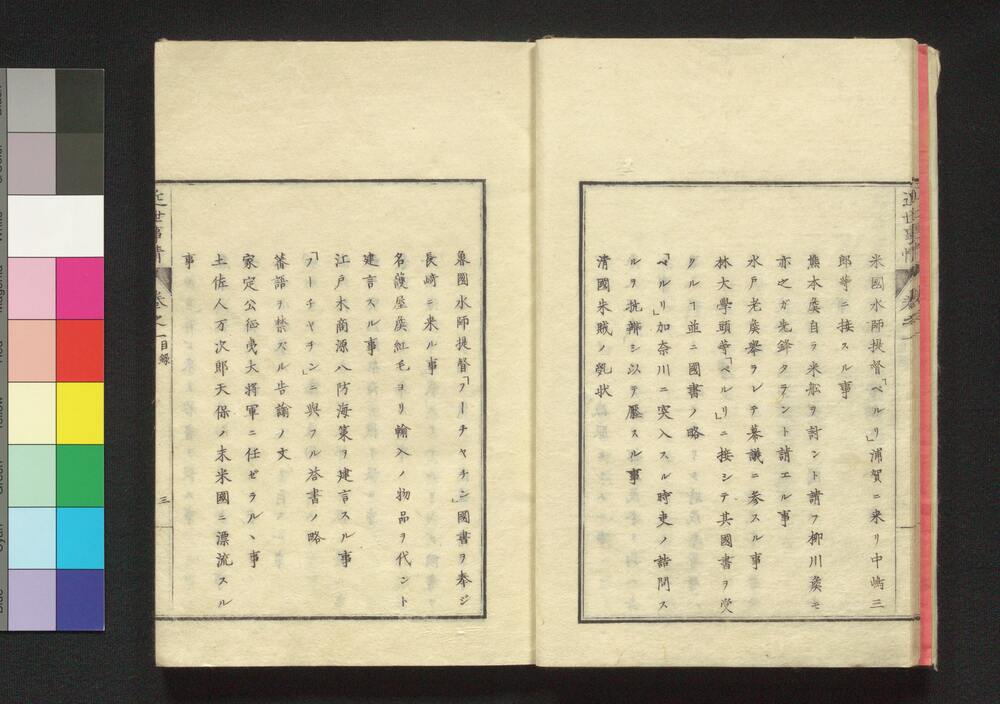 米國水師提督「ペルリ」浦賀ニ來リ中嶋三
郎等ニ接スル事
熊本矦自ラ米船ヲ討ント請フ柳川矦モ
亦之ガ先鋒タラント請エル事
水戸老矦擧ラレテ幕議ニ參スル事
林大學頭等「ペルリ」ニ接シテ其國書ヲ受
クルヿ並ニ國書ノ略
「ペルリ」加奈川ニ突入スル時吏ノ詰問ス
ルヲ抗辨シ以テ壓スル事
清國朱賊ノ乱状
魯國水師提督「フーチヤチン」國書ヲ奉ジ
長﨑ニ来ル事
名護屋矦紅毛ヨリ輸入ノ物品ヲ代ント
建言スル事
江戸木商源八防海策ヲ建言スル事
「フーチヤチン」ニ與フル答書ノ略
蕃語ヲ禁ズル告諭ノ文
家定公征夷大將軍ニ任ゼラルヽ事
土佐人万次郎天保ノ末米國ニ漂流スル
事
近世事情
巻之一目録
三